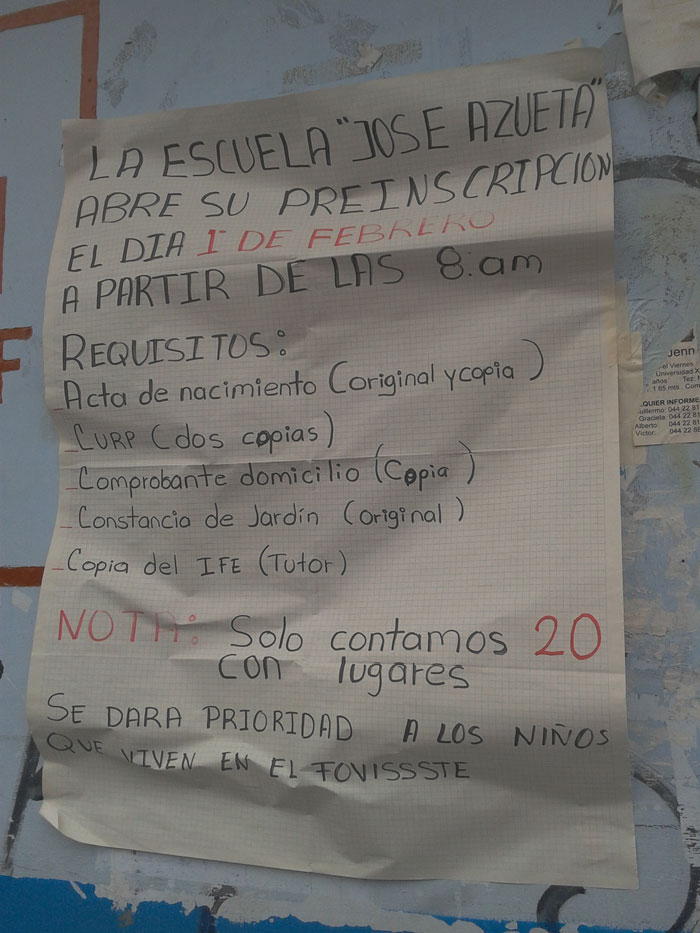 LA ESCUELA "JOSE AZUETA"
ABRE SU PREINSCRIPCION
EL DIA 1º DE FEBRERO
A PARTIR DE LAS 8:am
REQUISITOS:
_Acta de nacimiento (original y copia)
_CURP (dos copias)
_Comprobante domicilio (Copia)
_Constancia de Jardín (original)
_Copia del IFE (Tutor)
NOTA: Solo contamos 20
con lugares
SE DARA PRIORIDAD A LOS NIÑOS
QUE VIVEN EN EL FOVISSSTE
Jenn
el Viernes
Universidad X
años Tez:
1 65 mts. Com
QUIER INFORME
uillermo: 044 22 81
Graciela: 044 22 81
Alberto 044 22 81
Victor: 044 22 88